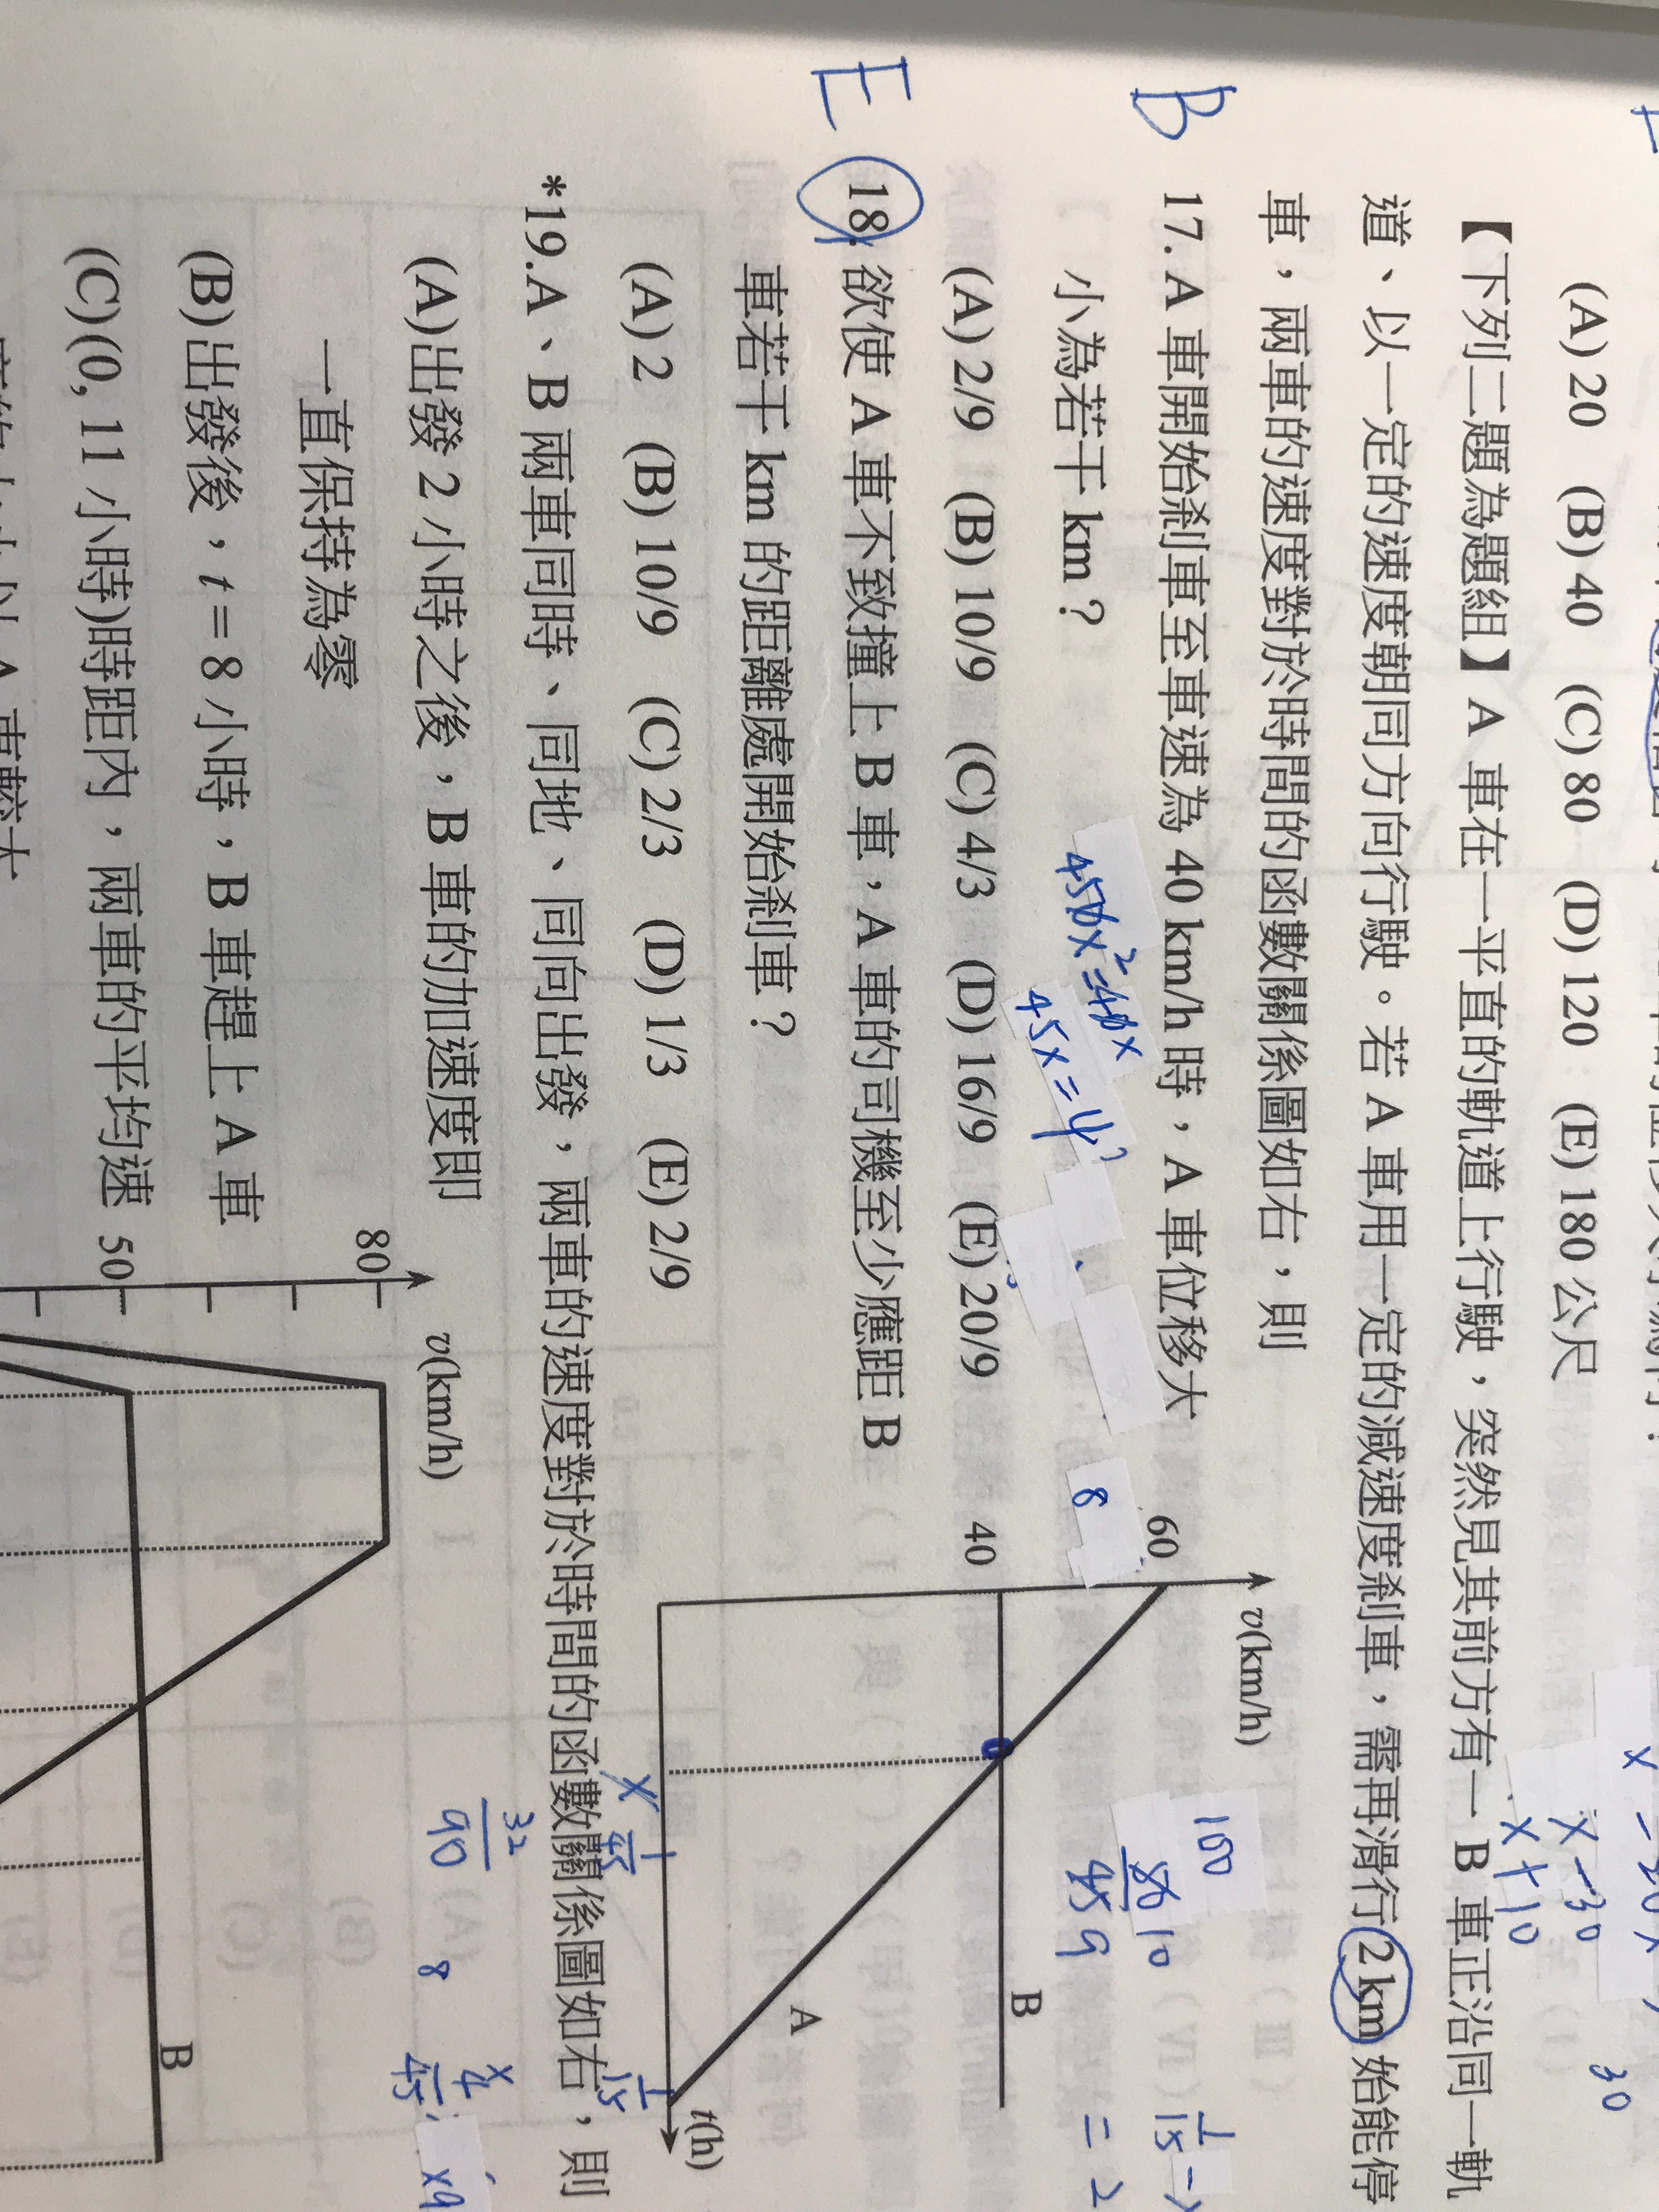 (A) 20 (B) 40 (C) 80 (D) 120 (E) 180 公尺
【下列二題為題組】A 車在一平直的軌道上行駛，突然見其前方有一 B 車正沿同一軌
道、以一定的速度朝同方向行駛。若 A 車用一定的減速度剎車，需再滑行 2 km 始能停
車，兩車的速度對於時間的函數關係圖如右，則
B
17. A 車開始剎車至車速為 40 km/h 時，A 車位移大
小為若干 km？
(A) 2/9 (B) 10/9 (C) 4/3 (D) 16/9 (E) 20/9
E
18. 欲使 A 車不致撞上 B 車，A 車的司機至少應距 B
車若干 km 的距離處開始剎車？
(A) 2 (B) 10/9 (C) 2/3 (D) 1/3 (E) 2/9
v(km/h)
60
40
B
A
t(h)
1/45
1/15
x
45x=4
8
100
x-30
x+10
30
32/90
8
*19.A、B 兩車同時、同地、同向出發，兩車的速度對於時間的函數關係圖如右，則
(A)出發 2 小時之後，B 車的加速度即
一直保持為零
(B)出發後，t = 8 小時，B 車趕上 A 車
(C)(0, 11 小時)時距內，兩車的平均速
v(km/h)
80
50
B